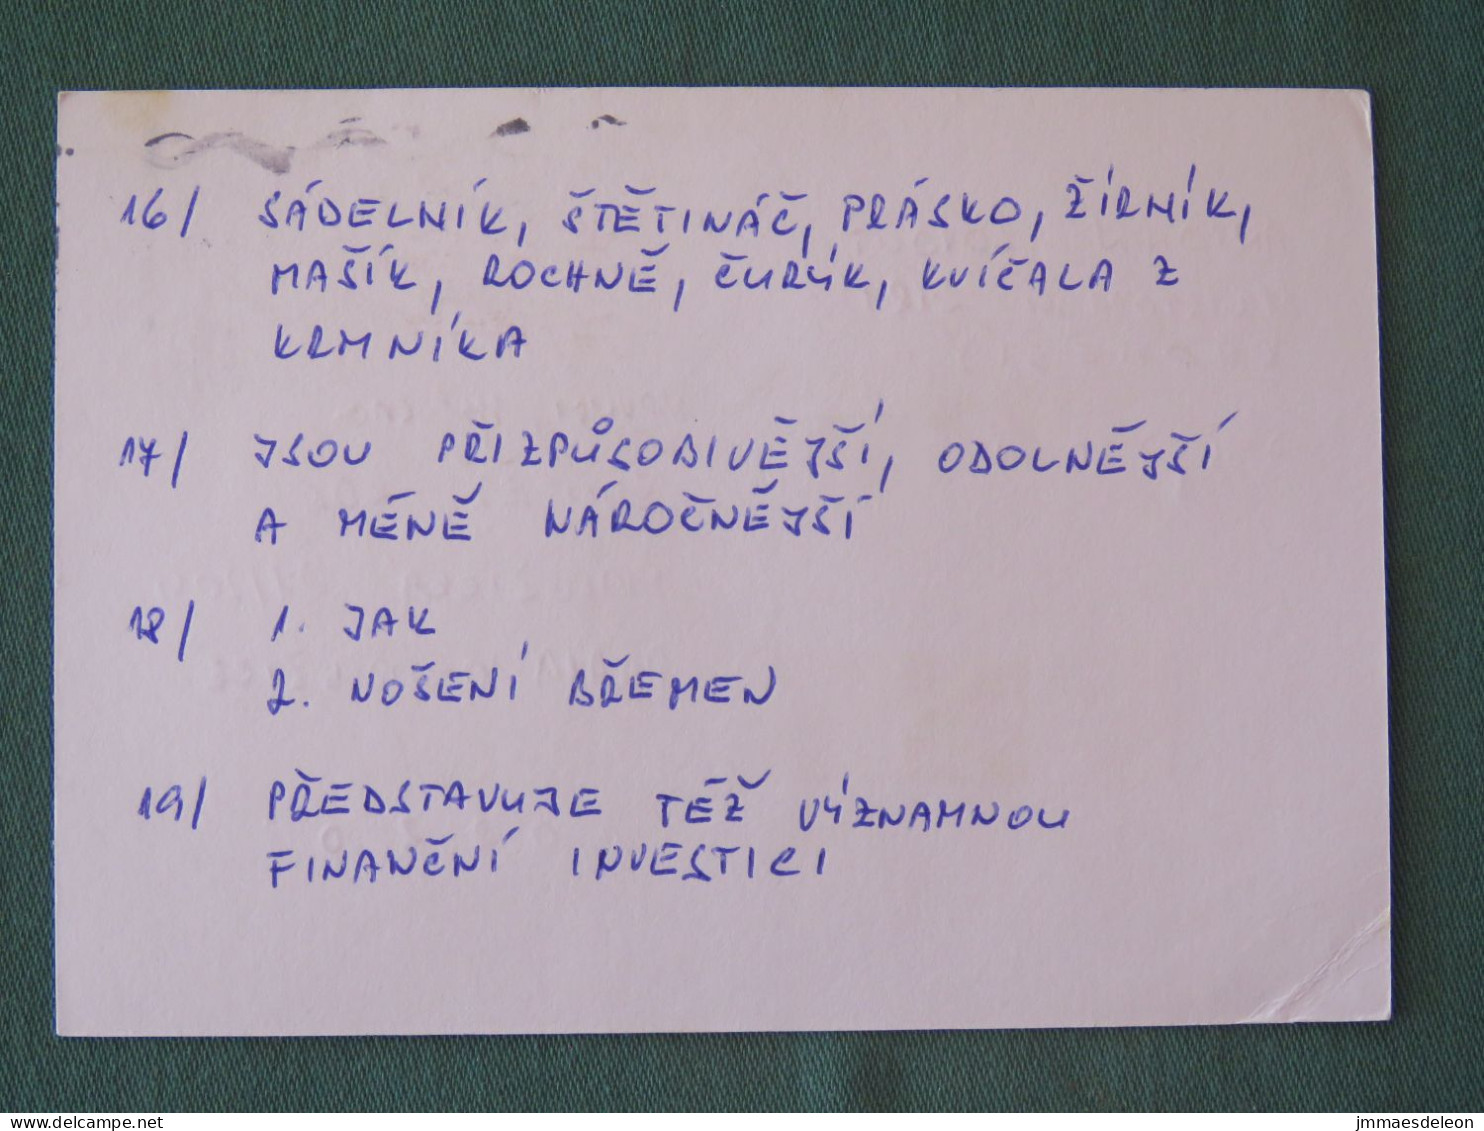 16/ SÁDELNÍK, ŠTĚTINÁČ, PRÁSKO, ŽÍRNÍK,
MAŠÍK, ROCHNĚ, ČURÍK, KVÍČALA Z
KRMNÍKA
17/ JSOU PŘIZPŮSOBIVĚJŠÍ, ODOLNĚJŠÍ
A MÉNĚ NÁROČNĚJŠÍ
18/ 1. JAK
2. NOŠENÍ BŘEMEN
19/ PŘEDSTAVUJE TÉŽ VÝZNAMNOU
FINANČNÍ INVESTICI
www.delcampe.net
jmmaesdeleon